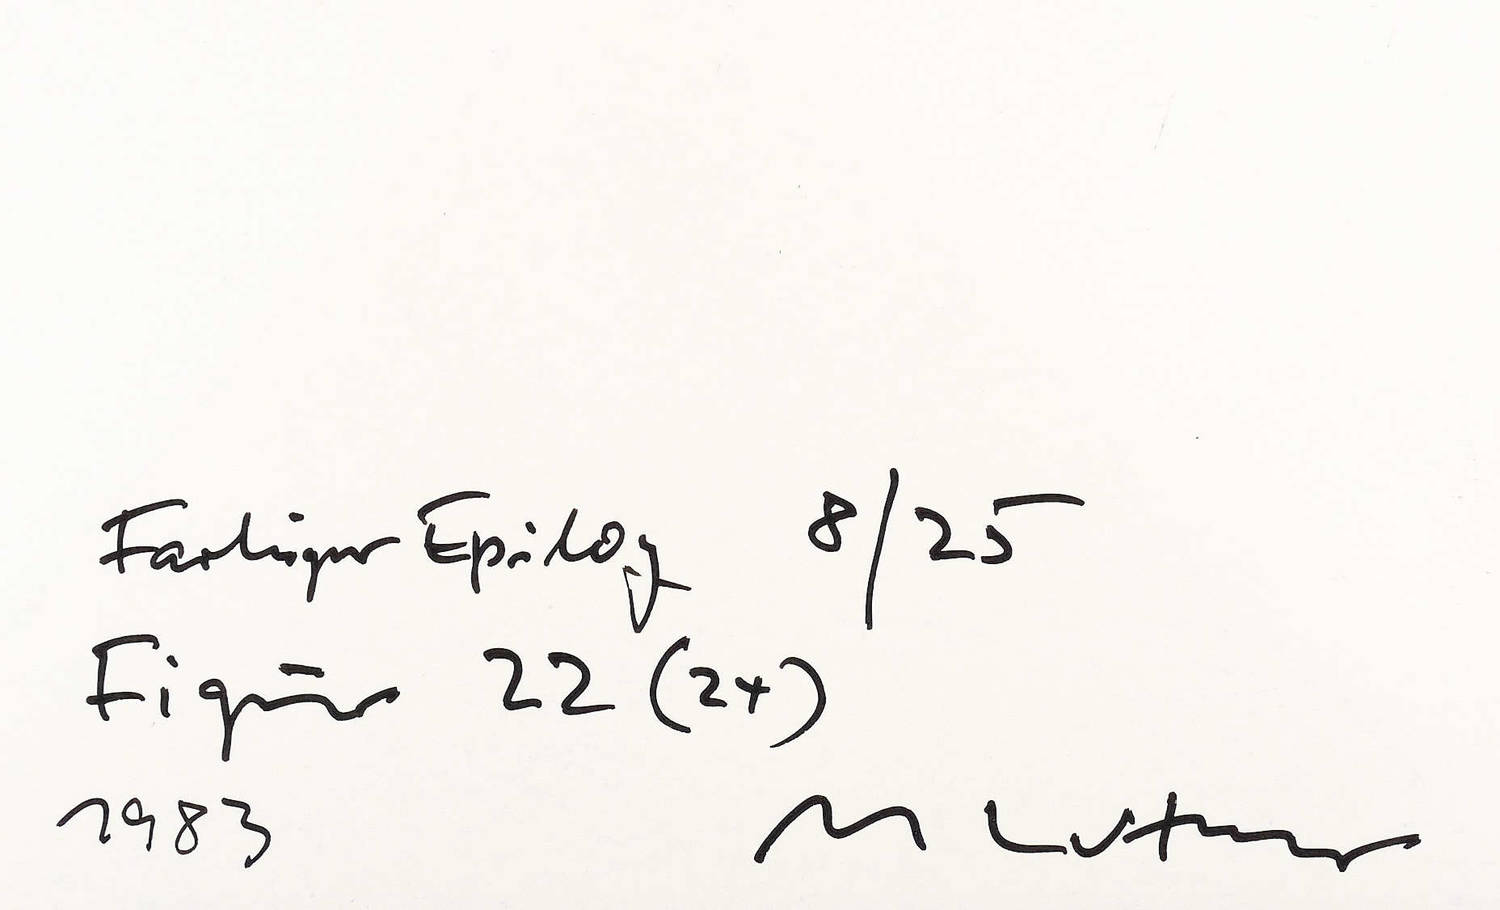 Farbiger Epilog 8/25
Figur 22 (24)
1983 M Luther